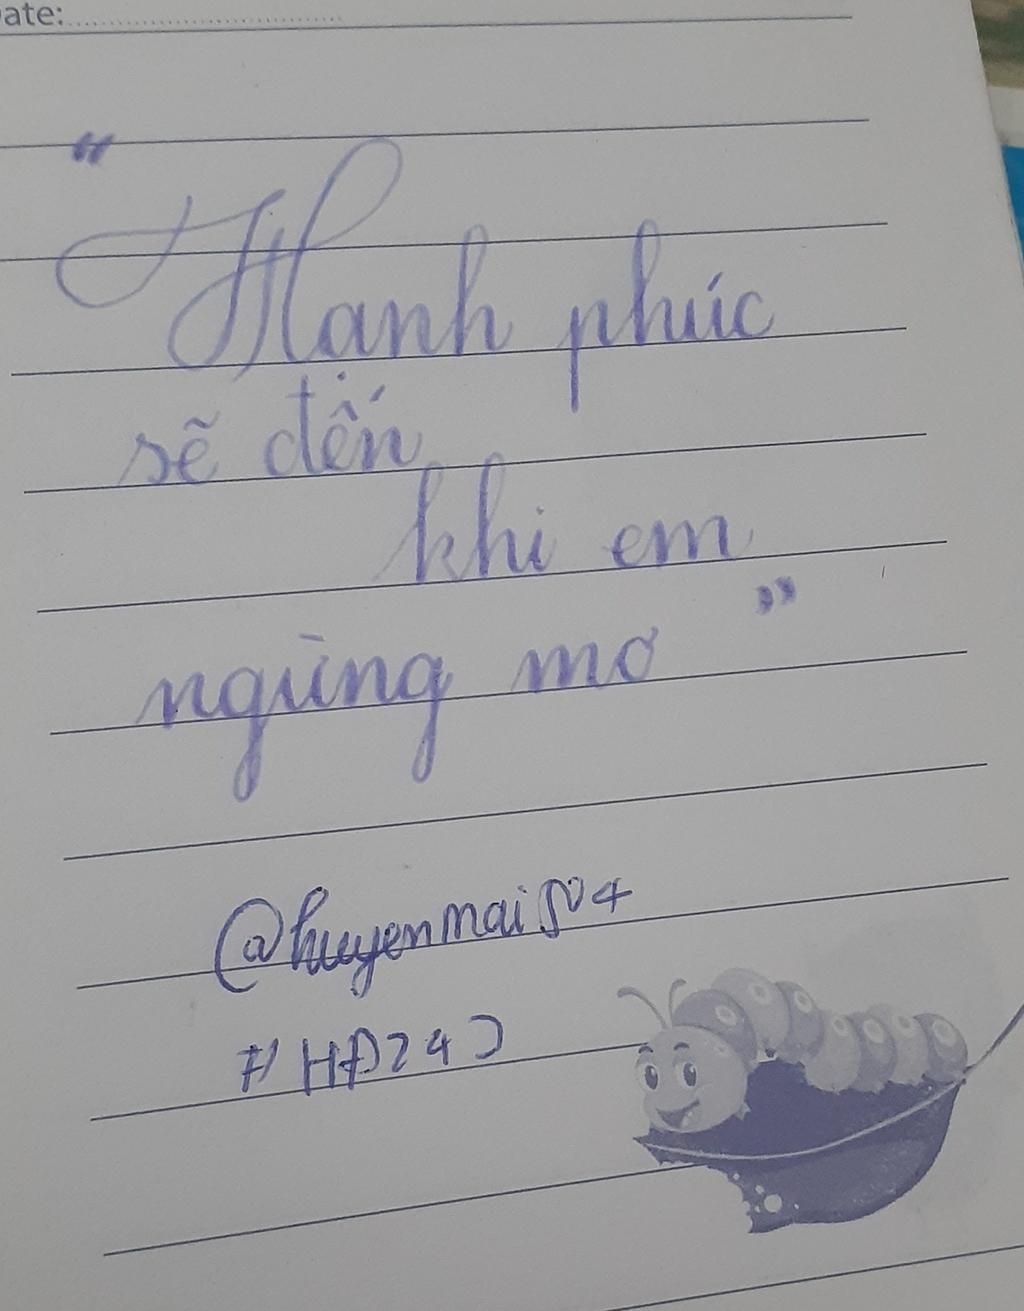 Date:
“
Hạnh phúc
sẽ đến
khi em
ngừng mơ ”
@huyenmai504